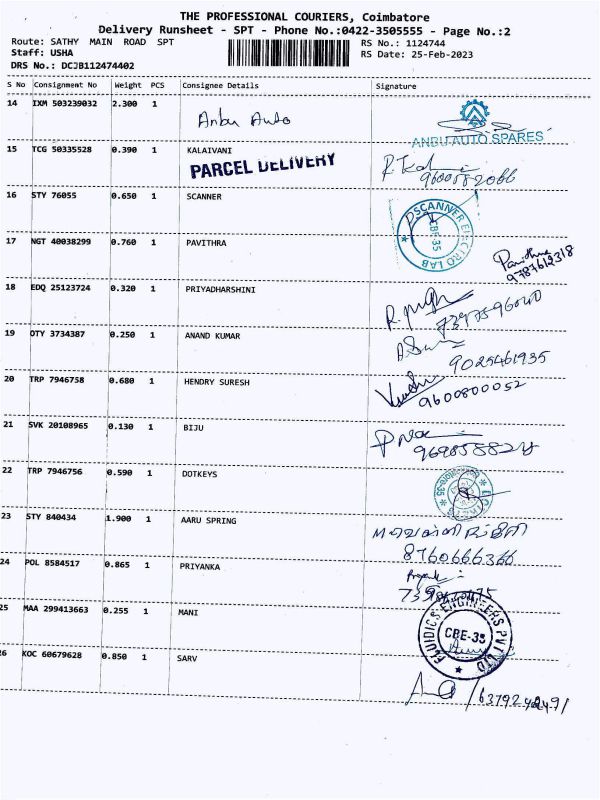 THE PROFESSIONAL COURIERS, Coimbatore
Delivery Runsheet - SPT - Phone No.:0422-3505555 - Page No.:2
Route: SATHY MAIN ROAD SPT
Staff: USHA
DRS No.: DCJB112474402
RS No.: 1124744
RS Date: 25-Feb-2023
S No Consignment No Weight PCS Consignee Details Signature
14 IXM 503239032 2.300 1 Anbu Auto
ANBU AUTO SPARES
15 TCG 50335528 0.390 1 KALAIVANI
PARCEL DELIVERY
16 STY 76055 0.650 1 SCANNER
SCANNER ELECTRO LAB
CBE-35
17 NGT 40038299 0.760 1 PAVITHRA
Pavithra
9787612318
18 EDQ 25123724 0.320 1 PRIYADHARSHINI
19 OTY 3734387 0.250 1 ANAND KUMAR
9025461935
20 TRP 7946758 0.680 1 HENDRY SURESH
9600800052
21 SVK 20108965 0.130 1 BIJU
22 TRP 7946756 0.590 1 DOTKEYS
23 STY 840434 1.900 1 AARU SPRING
8760666366
24 POL 8584517 0.865 1 PRIYANKA
25 MAA 299413663 0.255 1 MANI
FLUIDICS ENGINEERS PVT LTD
CBE-35
26 KOC 60679628 0.850 1 SARV